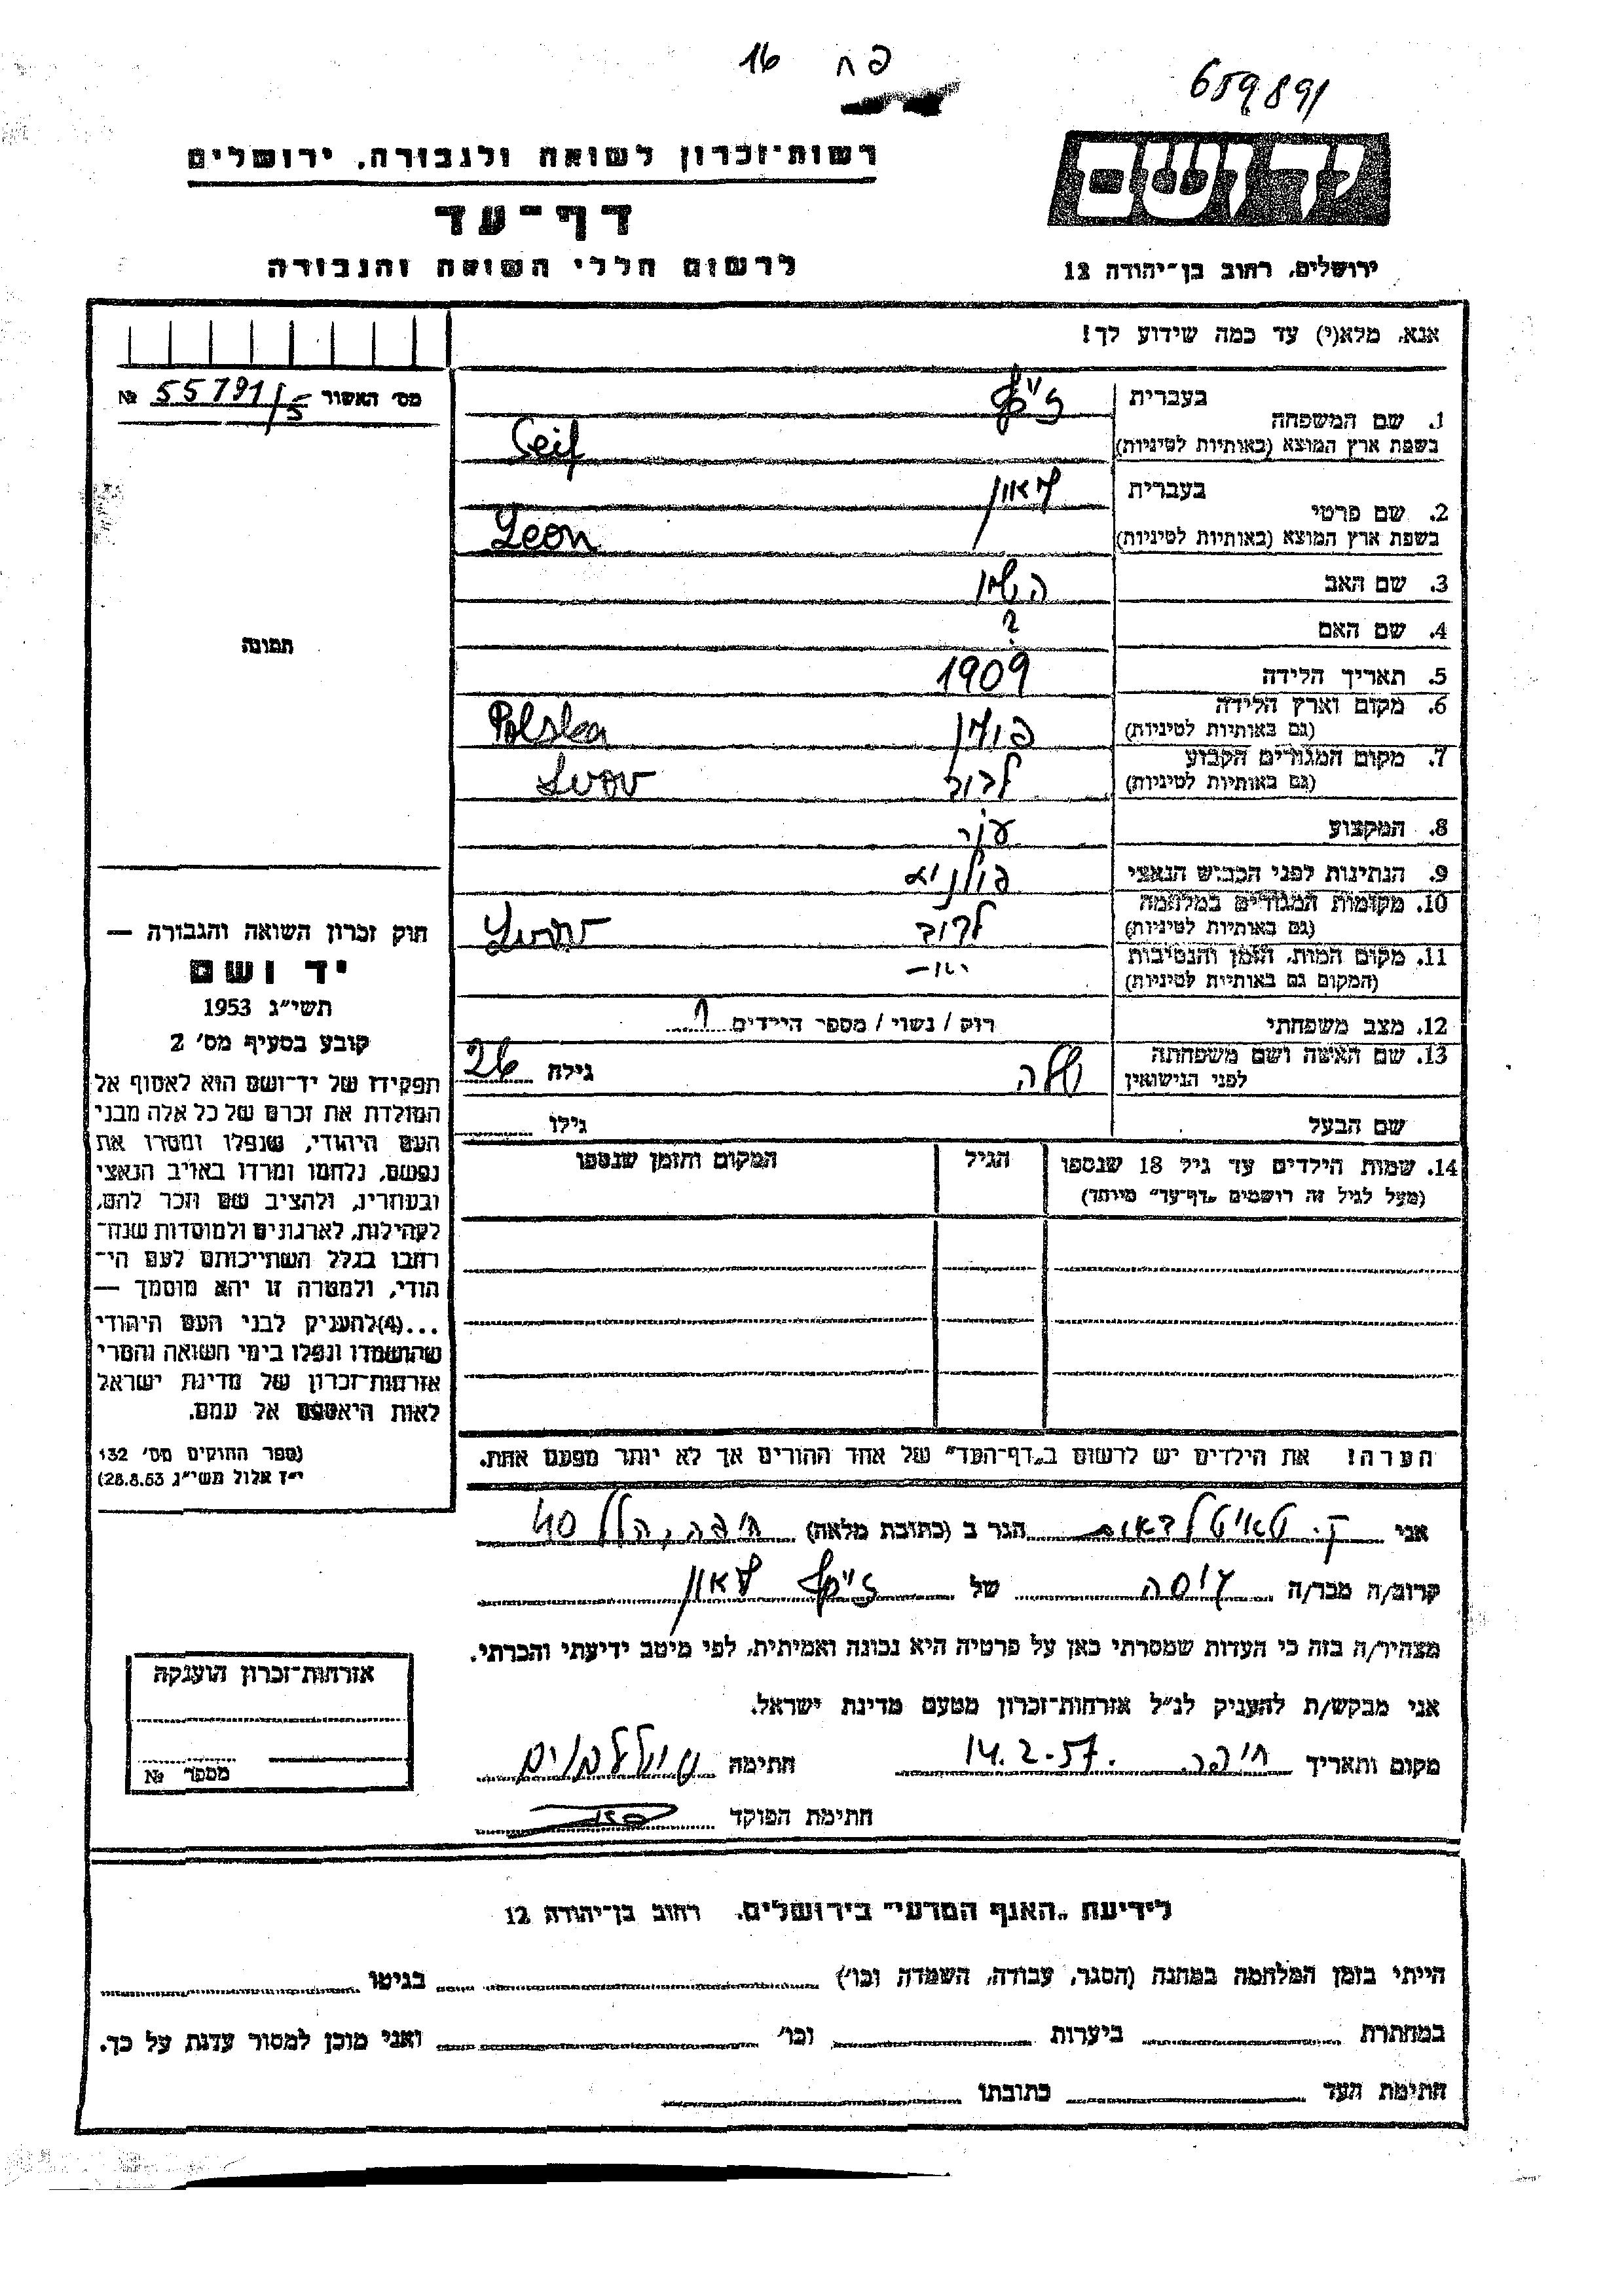 16 פח
659891
רשות־זכרון לשואה ולגבורה, ירושלים
יד ושם
דף־עד
לרשום חללי השואה והגבורה
ירושלים, רחוב בן־יהודה 12
אנא, מלא(י) עד כמה שידוע לך!
מס׳ האשור № 55791/5
1. שם המשפחה
בעברית צייף
בשפת ארץ המוצא (באותיות לטיניות) Ceif
2. שם פרטי
בעברית לאון
בשפת ארץ המוצא (באותיות לטיניות) Leon
3. שם האב
4. שם האם ?
5. תאריך הלידה 1909
6. מקום וארץ הלידה פולין Polska
(גם באותיות לטיניות)
7. מקום המגורים הקבוע לבוב Lvov
(גם באותיות לטיניות)
8. המקצוע
9. הנתינות לפני הכבוש הנאצי פולניא
10. מקומות המגורים במלחמה לבוב Lvov
(גם באותיות לטיניות)
11. מקום המות, הזמן והנסיבות
(המקום גם באותיות לטיניות)
12. מצב משפחתי רוק / נשוי / מספר הילדים 1
13. שם האשה ושם משפחתה
לפני הנישואין גילה 26
שם הבעל גילו
תמונה
14. שמות הילדים עד גיל 18 שנספו הגיל המקום והזמן שנספו
(מעל לגיל זה רושמים „דף־עד״ מיוחד)
חוק זכרון השואה והגבורה —
יד ושם
תשי״ג 1953
קובע בסעיף מס׳ 2
תפקידו של יד־ושם הוא לאסוף אל
המולדת את זכרם של כל אלה מבני
העם היהודי, שנפלו ומסרו את
נפשם, נלחמו ומרדו באויב הנאצי
ובעוזריו, ולהציב שם וזכר להם,
לקהילות, לארגונים ולמוסדות שנח־
רחבו בגלל השתייכותם לעם הי־
הודי, ולמטרה זו יהא מוסמך —
...(4) להעניק לבני העם היהודי
שהושמדו ונפלו בימי השואה והמרי
אזרחות־זכרון של מדינת ישראל
לאות היאספם אל עמם.
(ספר החוקים מס׳ 132
י״ז אלול תשי״ג 28.8.53)
הערה! את הילדים יש לרשום ב„דף־העד״ של אחד ההורים אך לא יותר מפעם אחת.
אני ק. טאיטלבאום הגר ב (כתובת מלאה) חיפה, הלל 40
קרוב/ה מכר/ה של צייף לאון
מצהיר/ה בזה כי העדות שמסרתי כאן על פרטיה היא נכונה ואמיתית, לפי מיטב ידיעתי והכרתי.
אני מבקש/ת להעניק לנ״ל אזרחות־זכרון מטעם מדינת ישראל.
מקום ותאריך חיפה 14.2.57. חתימה
חתימת הפוקד
אזרחות־זכרון הוענקה
מספר №
לידיעת „האגף המדעי״ בירושלים, רחוב בן־יהודה 12
הייתי בזמן המלחמה במחנה (הסגר, עבודה, השמדה וכו׳) בגיטו
במחתרת ביערות וכו׳ ואני מוכן למסור עדות על כך.
חתימת העד כתובתו